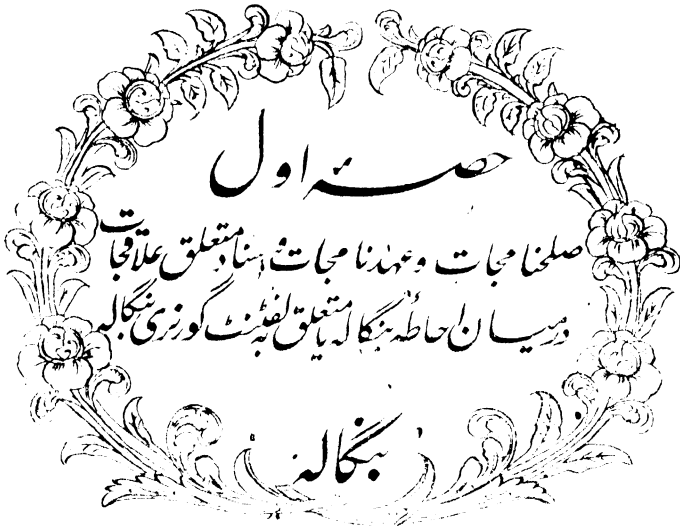 حصۂ اول
صلحنامجات وعہدنامجات واسناد متعلق علاقجات
درمیان احاطۂ بنگالہ یا متعلق بہ لفٹنٹ گورنری بنگالہ
بنگالہ